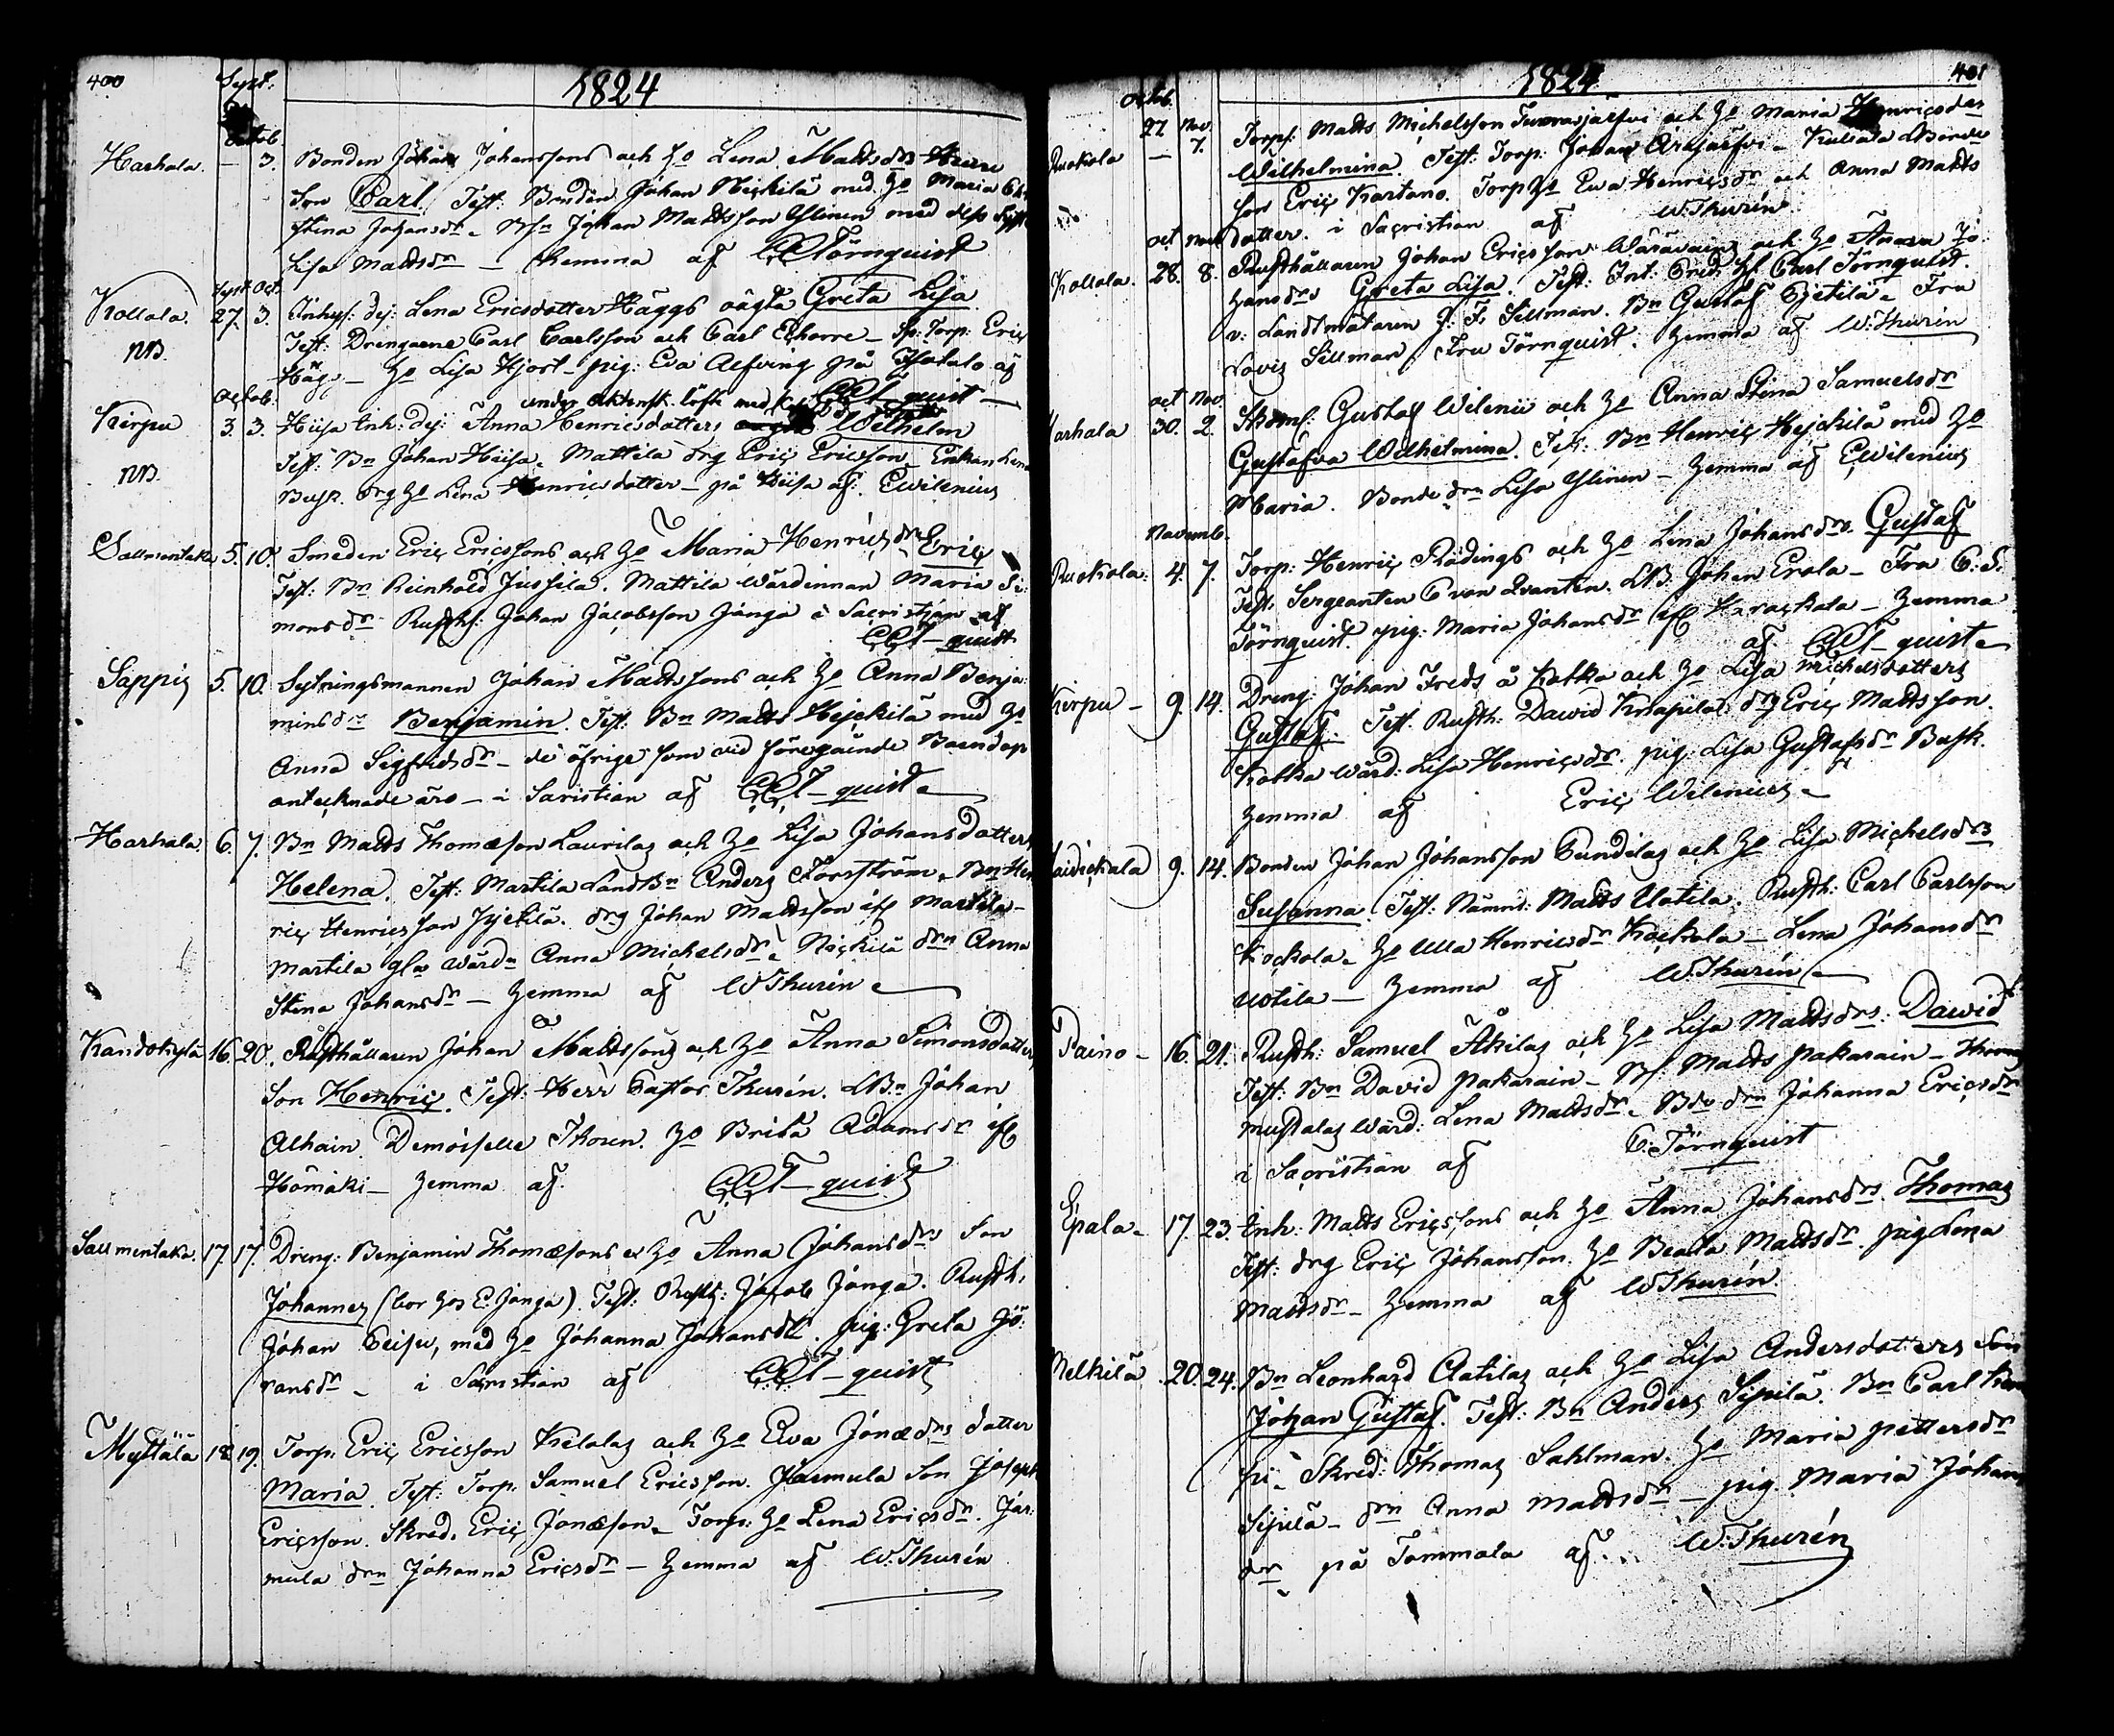 400 Sept. 1824
Octob.
Harhala. — 3. Bonden Johan Johanssons och Ho Lena Mattsdrs
Son Carl. Test: Bonden Johan Heickilä med Ho Maria
stina Johansdr. Johan Mattsson Ylinen med dess
Lisa Mattsdr — hemma af CCTörnquist
Sept. Oct.
Kollola. 27. 3. Inhys: dej: Lena Ericsdotter Häggs oägta Greta Lisa
NB. Test: Drengarne Carl Carlsson och Carl — Torp: Eric
Hägg — Ho Lisa Hjort — pig: Eva Alfving på af
Octob. under äktensk. löfte med CCT—quist —
Kirpu 3. 3. Hiisa Inh: dej: Anna Henricsdotters Wilhelm
NB. Test: Bn Johan Hiisa. Mattila drg Eric Ericsson Enkan Lena
Busk. drg Ho Lena Henricsdotter — på Hiisa af. EWilenius
Sallmentaka 5. 10. Smeden Eric Ericssons och Ho Maria Henricsdrs Eric
Test: Bn Reinhold Jussila. Mattila Wärdinnan Maria Si:
monsdr Rusth: Johan Jacobsson Jånga i Sacristian af
CCT—quist
Sappi 5. 10. Sytningsmannen Johan Mattssons och Ho Anna Benja:
minsdrs Benjamin. Test: Bn Matts Hejckilä med Ho
Anna Sigfridsdr — de öfrige som vid föregående Barndop
antecknade äro — i Saristian af CCT—quist
Harhala. 6. 7. Bn Matts Thomæson Laurilas och Ho Lisa Johansdotters
Helena. Test: Martila LandBn Anders Forsström. Bn Hen
ric Henricsson Jyckilä. drg Johan Mattsson ifr Martila —
Martila gla Wärdn Anna Michelsdr. Heickilä drn Anna
Stina Johansdr — hemma af WThurén
Kandokylä 16. 20. Rusthållaren Johan Mattssons och Ho Anna Simonsdotters
Son Henric. Test: Herr Pastor Thurén. LBn Johan
Alhain Demoiselle Thoren. Ho Brita Adamsdr ifr
Hömäki — hemma af. CCT—quist
Sallmentaka. 17. 17. Dreng: Benjamin Thomæsons o Ho Anna Johansdrs Son
Johannes (bor hos E. Jånga). Test: Rusth: Jacob Jånga. Rusth:
Johan Peisu, med Ho Johanna Johansdr. pig: Greta Jö:
ransdr — i Sacristian af CCT—quist
Myttälä 18. 19. Torp: Eric Ericsson Kelalas och Ho Eva Jonædrs dotter
Maria. Test: Torp: Samuel Ericsson. Jarmula Son Joseph
Ericsson. Skred. Eric Jonæson. Torp: Ho Lena Ericsdr. Jar:
mula drn Johanna Ericsdr — hemma af W.Thurén
1824 401
Octob.
27 Nov. Torp: Matts Michelsson och Ho Maria Henricsdrs
Ruokola — 7. Wilhelmina. Test: Torp: Johan Arajärfvi — Bonde
son Eric Kartano. Torp Ho Eva Henricsdr och Anna Matts
dotter. i Sacristian af W.Thurén.
Oct Nov.
Kollola. 28. 8. Rusthållaren Johan Ericsson och Ho Anna Jo:
hansdrs Greta Lisa. Test: Carl Törnquist.
v: Landtmätaren J: F. Sellman. Bn Gustaf Fru
Lovis Sellman. Fru Törnquist. hemma af W.Thurén
Oct Nov.
Harhala 30. 2. Skom: Gustaf Wilenii och Ho Anna Stina Samuelsdrs
Gustafva Wilhelmina. Test: Bn Henric Hejckilä med Ho
Maria. Bondedrn Lisa Ylinen — hemma af EWilenius
Novemb.
Ruokola. 4. 7. Torp: Henric Rädings och Ho Lena Johansdrs Gustaf
Test: Sergeanten C von Qvanten. LB: Johan Erola — Fru C: S:
Törnquist. pig: Maria Johansdr — hemma
af CCT—quist
Kirpu — 9. 14. Dreng: Johan Freds å Kotka och Ho Lisa Michelsdotters
Gustaf. Test: Rusth: Dawid Knapila. drg Eric Mattsson.
Kotka Wärd: Lisa Henricsdr. pig: Lisa Gustafsdr Busk.
hemma af Eric Wilenius
9. 14. Bonden Johan Johansson Pundilas och Ho Lisa Michelsdrs
Susanna. Test: Nämnd: Matts Uotila. Rusth: Carl Carlsson
Kockola. Ho Ulla Henricsdr Kockola — Lena Johansdr
Uotila — hemma af W.Thurén
Paino — 16. 21. Rusth: Samuel Åkilas och Ho Lisa Mattsdrs: Dawid
Test: Bn David Pakarain — Matts Pakarain —
Mustalas Wärd: Lena Mattsdr. drn Johanna Ericsdr
i Sacristian af C. Törnquist
Epala — 17. 23. Inh: Matts Ericssons och Ho Anna Johansdrs. Thomas
Test: drg Eric Johansson. Ho Beata Mattsdr. pig Lena
Mattsdr — hemma af WThurén.
Melkilä 20. 24. Bn Leonhard Aatilas och Ho Lisa Andersdotters Son
Johan Gustaf. Test: Bn Anders Sipilä. Bn Carl
Skred: Thomas Sahlman. Ho Maria Pettersdr
Sipilä — drn Anna Mattsdr — pig. Maria Johans
dr på Tommola af. W.Thurén